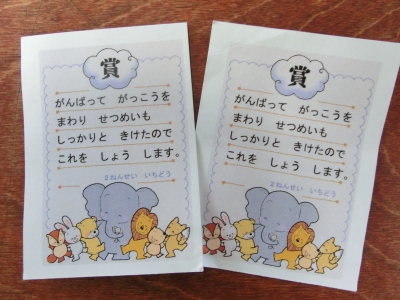 賞
がんばって　がっこうを
まわり　せつめいも
しっかりと　きけたので
これを　しょう　します。
2ねんせい　いちどう
賞
がんばって　がっこうを
まわり　せつめいも
しっかりと　きけたので
これを　しょう　します。
2ねんせい　いちどう